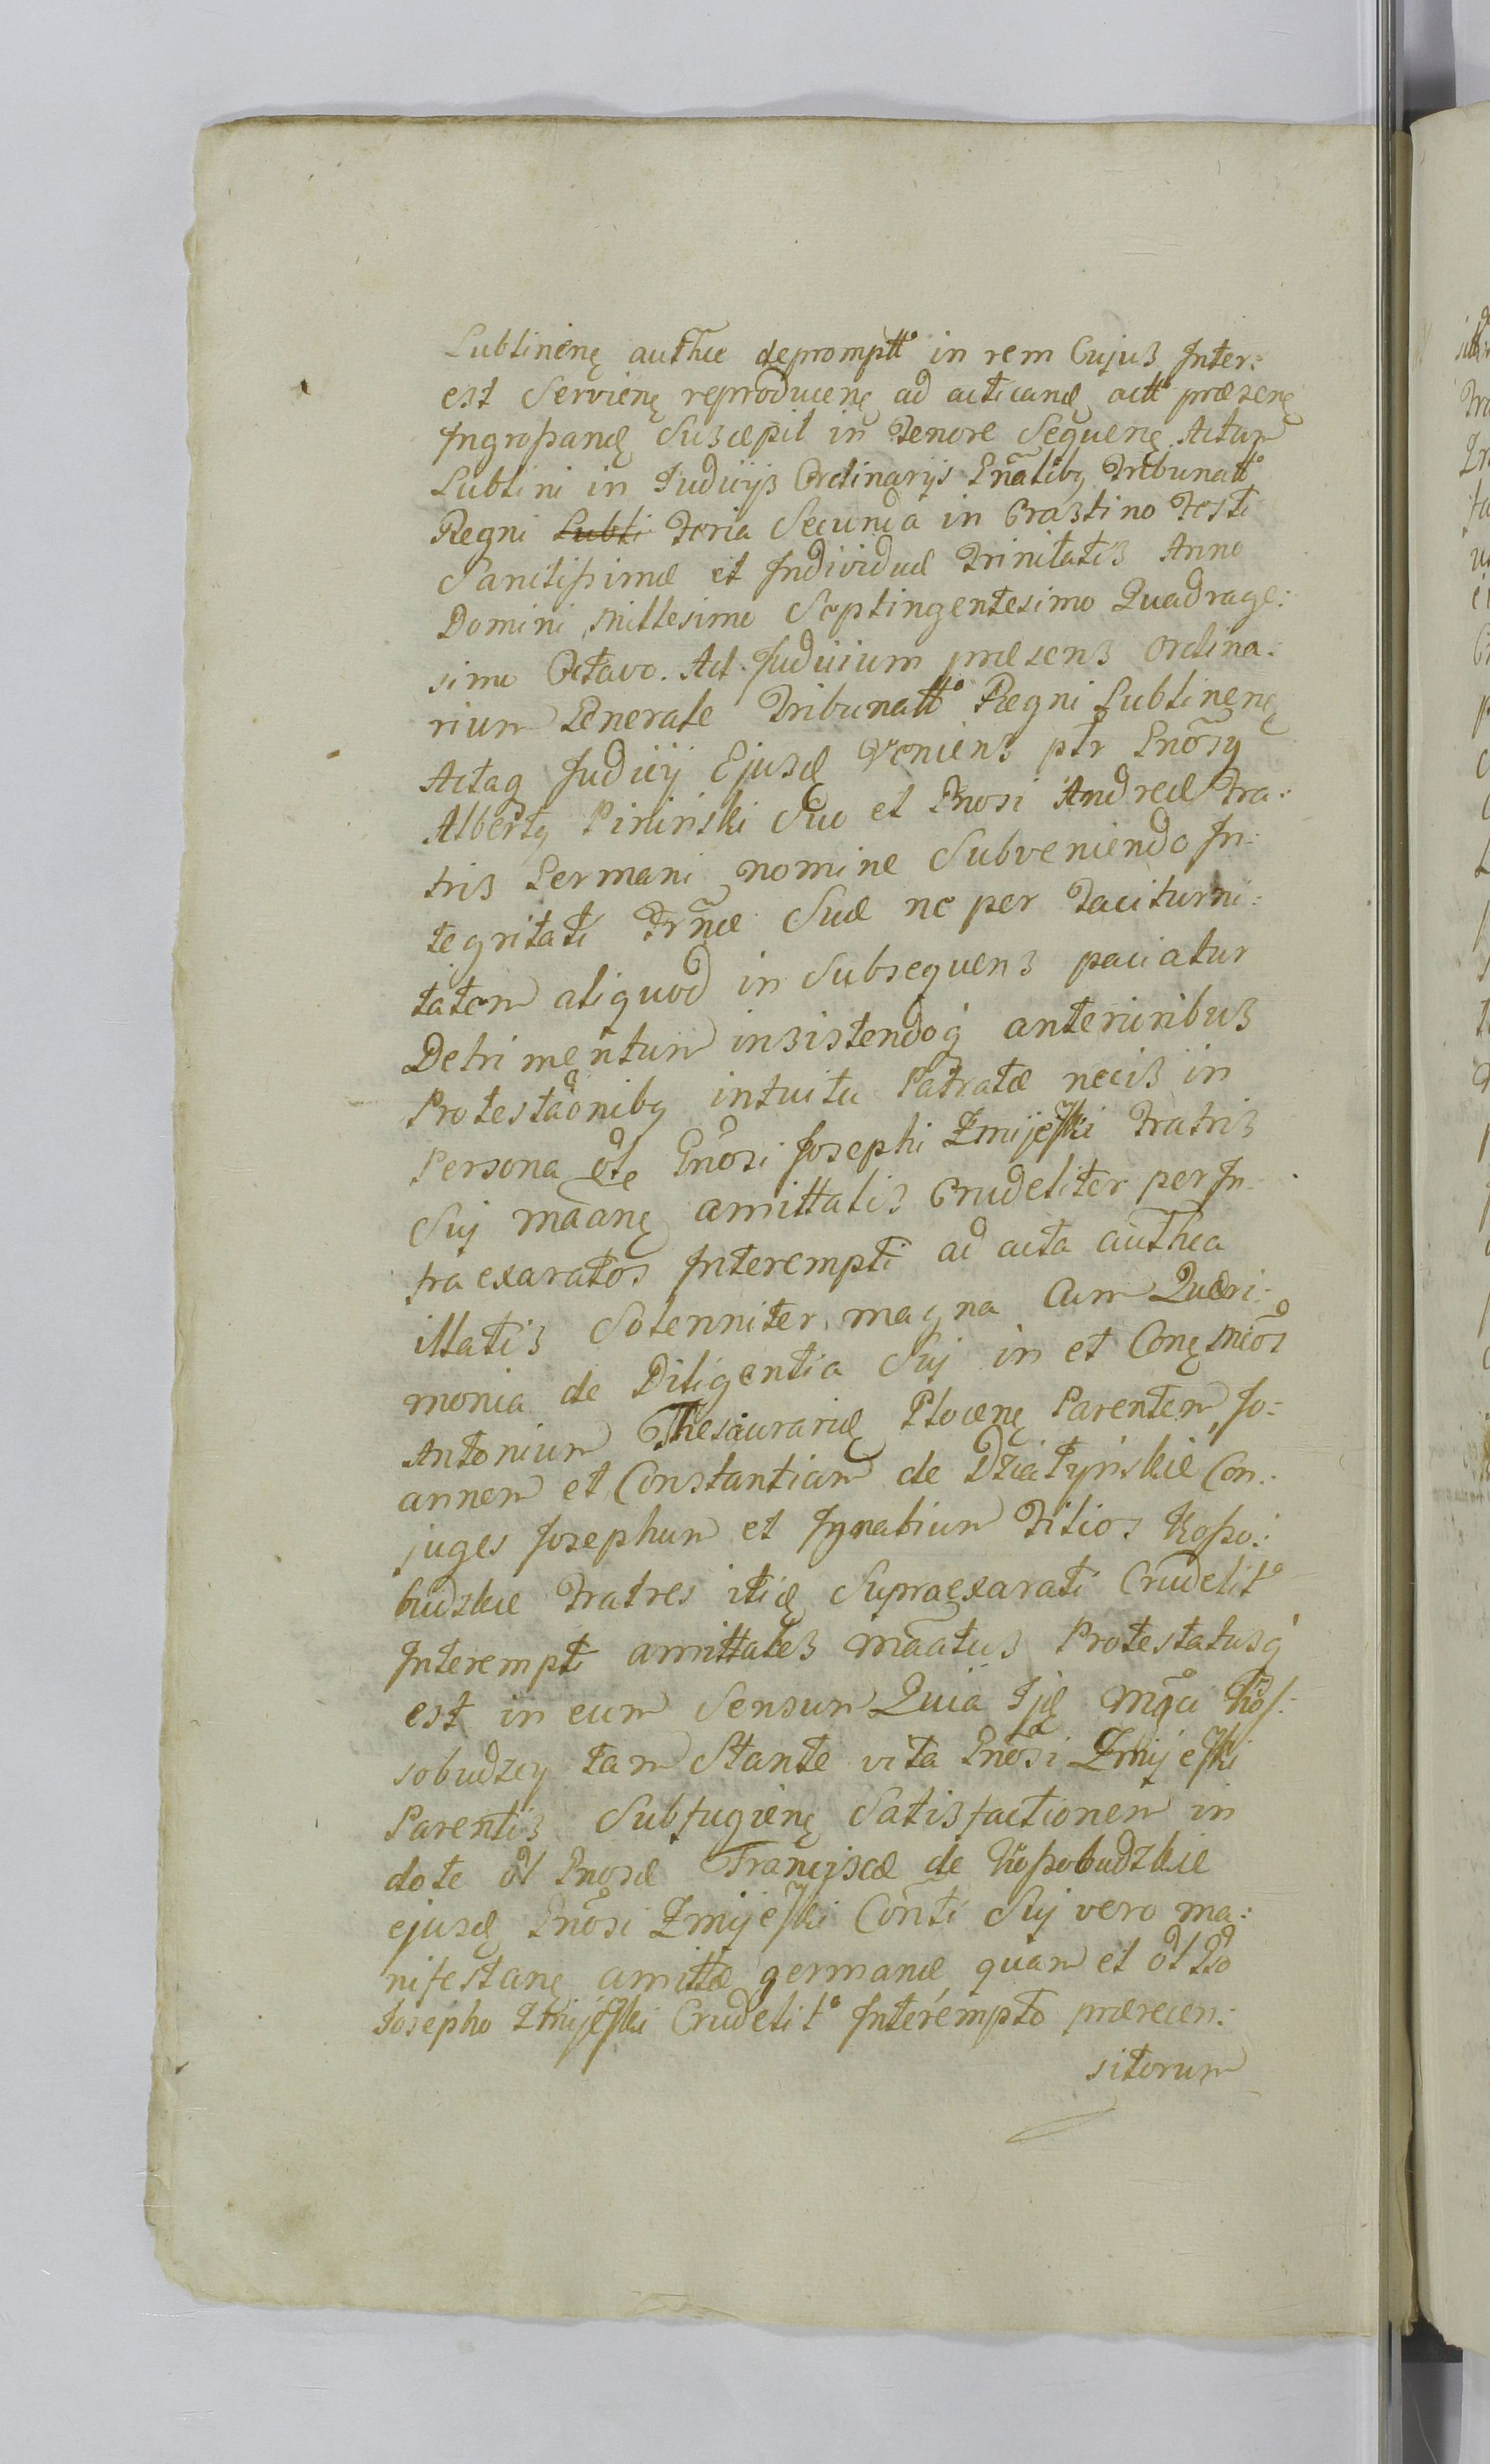 Lublinenę autħce depromptt° in rem Cujus Inter:
est Servienę reproducenę ad acticandę actt° præsenę
Ingroßandę Suscæpit in Tenore Sequenę Actum
Lublini in Judicijs Ordinarijs Gñalibq Tribunatt°
Regni Lubli Feria Secunda in Crastino Festi
Sanctißimæ et Individuæ Trinitatis Anno
Domini Millesimo Septingentesimo Quadrage:
simo Octavo. Ad Judicium præsens Ordina:
rium Generale Tribunatt° Regni Lublinenę
Actaq Judicij Ejusdę Veniens ptr Gnõsq
Albertq Pininski Suo et Gnosi Andreæ Fra:
tris Germani nomine Subveniendo In:
tegritati Jrñæ Suæ ne per Taciturni:
tatem aliquod in Subsequens paciatur
Detrimentum insistendoq́ anterioribus
Protestaõnibq intuitu Patratæ necis in
Persona ole Gnõsi Josephi Zmijeſki Fratris
Sui mãanę amittalis Crudeliter per In:
fra exaratos Interempti ad acta autħca
illatis Solenniter magna Cum Quæri:
monia de Diligentia Sui in et Conę Mcõs
Antonium Thesaurariũ Plocenę Parentem, Jo:
annem et Constantiam de Działyńskie Con:
juges Josephum et Ignatium Filios Koßo:
budzkie Fratres itidę Supraexarati Crudelit°
Interempti amittales mãatus Protestatusq́
est in eum Sensum Quia Ijdę Mgci Koſ:
sobudzcy tam Stante vita Gnõsi Zmijeſki
Parentis Subfugienę Satisfactionem in
dote ol Gnosæ Franciscæ de Koßobudzkie
ejusdę Gnõsi Zmijeſki Cõnti Sui vero ma:
nifestanę amittæ germanæ quam et ol Gso
Josepho Zmijeſki Crudelit° Interempto præcen:
sitorum